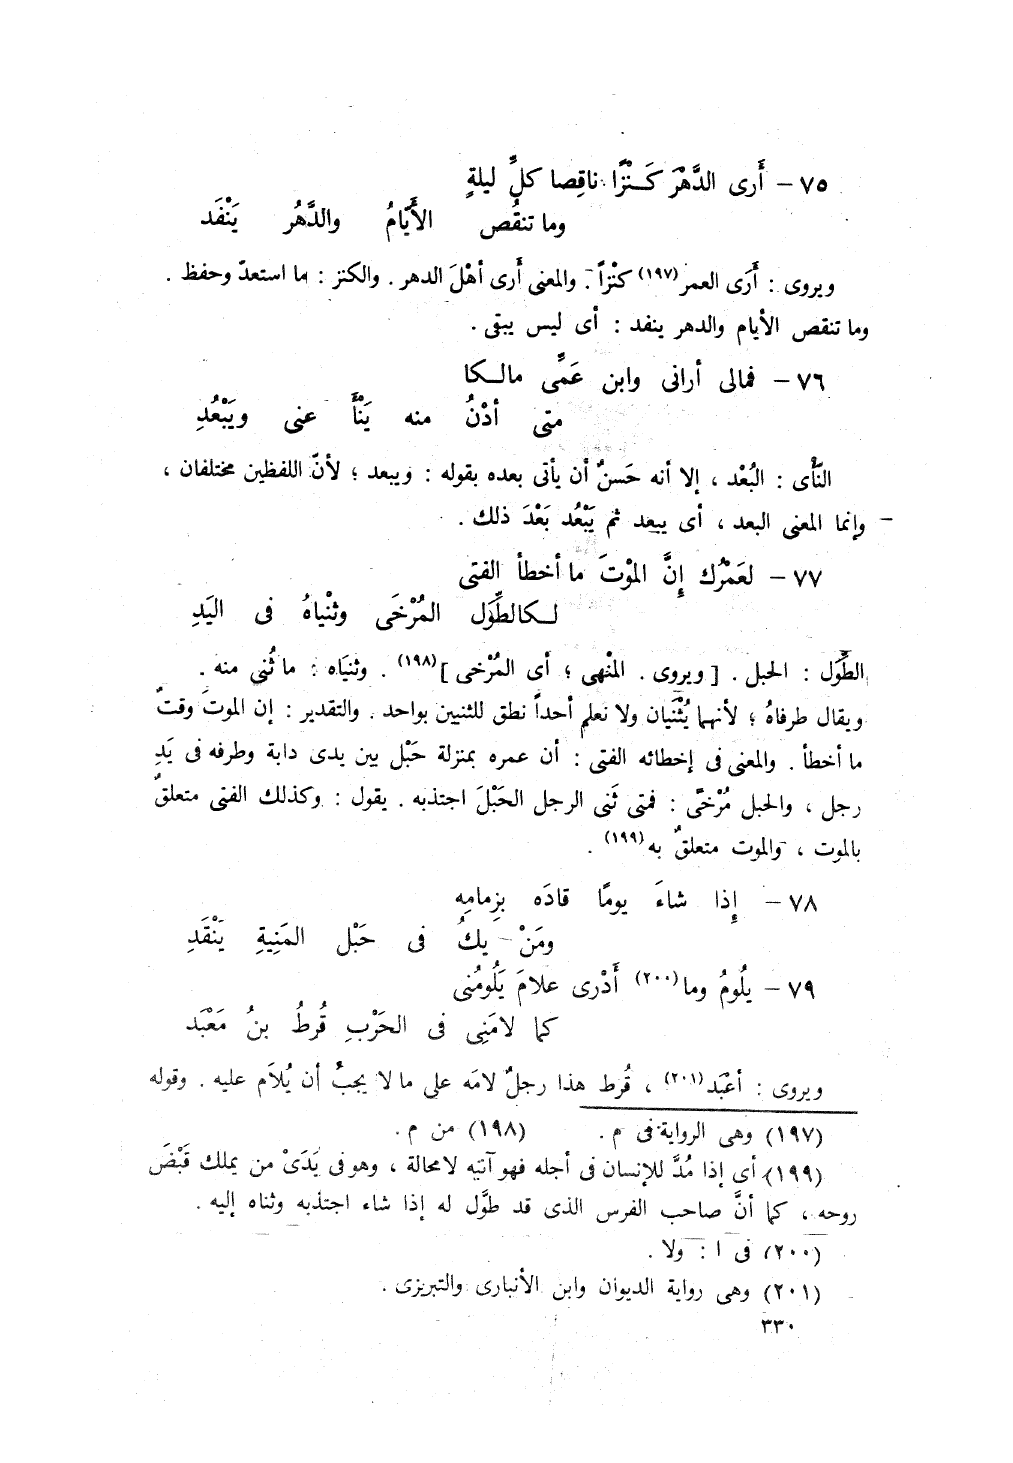 ٧٥ – أَرى الدَّهْرَ كَـنْزًا ناقِصا كلَّ ليلةٍ
وما تنقُص الأَيّامُ والدَّهُر يَنْفَد
ويروى : أَرَى العمر(١٩٧) كنْزاً . والمعنى أرى أهْلَ الدهر . والكنز : ما استعدّ وحفظ .
وما تنقص الأيام والدهر ينفد : أى ليس يبقى .
٧٦ – فمالى أرانى وابن عَمِّى مالـكا
متى أدْنُ منه يَنْأَ عنى ويَبْعُدِ
النَّأْى : البُعْد ، إلا أنه حَسنٌ أن يأتى بعده بقوله : ويبعد ؛ لأنّ اللفظين مختلفان ،
وإنما المعنى البعد ، أى يبعد ثم يَبْعُد بَعْدَ ذلك .
٧٧ – لعَمْرُك إِنَّ المْوتَ ما أخطأ الفتى
لـكالطِّوَل المُرْخَى وثنْياهُ فى اليَدِ
الطِّوَل : الحبل . [ ويروى . المنْهى ؛ أى المُرْخى ](١٩٨) . وثنيَاه : ما ثُنى منه .
ويقال طرفاهُ ؛ لأنهما يُثْنَيان ولا نعلم أحداً نطق للثنيين بواحد . والتقدير : إن الموتَ وقتَ
ما أخطأ . والمعنى فى إخطائه الفتى : أن عمره بمنزلة حَبْل بين يدى دابة وطرفه فى يَدِ
رجل ، والحبل مُرْخًى : فمتى ثَنى الرجل الحَبْلَ اجتذبه . يقول : وكذلك الفتى متعلقٌ
بالموت ، والموت متعلقٌ به(١٩٩) .
٧٨ – إِذا شاءَ يومًا قادَه بِزِمامِه
ومَنْ يكُ فى حَبْل المَنِيةِ يَنْقَدِ
٧٩ – يلُومُ وما(٢٠٠) أَدْرى علامَ يَلُومُنى
كما لامَنِى فى الحَرْبِ قُرطُ بنُ مَعْبَد
ويروى : أعْبَد(٢٠١) ، قُرط هذا رجلٌ لامَه على ما لا يجبُ أن يُلاَم عليه . وقوله
(١٩٧) وهى الرواية فى م . (١٩٨) من م .
(١٩٩) أى إذا مُدَّ للإنسان فى أجله فهو آتيه لا محالة ، وهو فى يَدَىْ من يملك قَبْضَ
روحه ، كما أنَّ صاحب الفرس الذى قد طوَّل له إذا شاء اجتذبه وثناه إليه .
(٢٠٠) فى ا : ولا .
(٢٠١) وهى رواية الديوان وابن الأنبارى والتبريزى .
٣٣٠